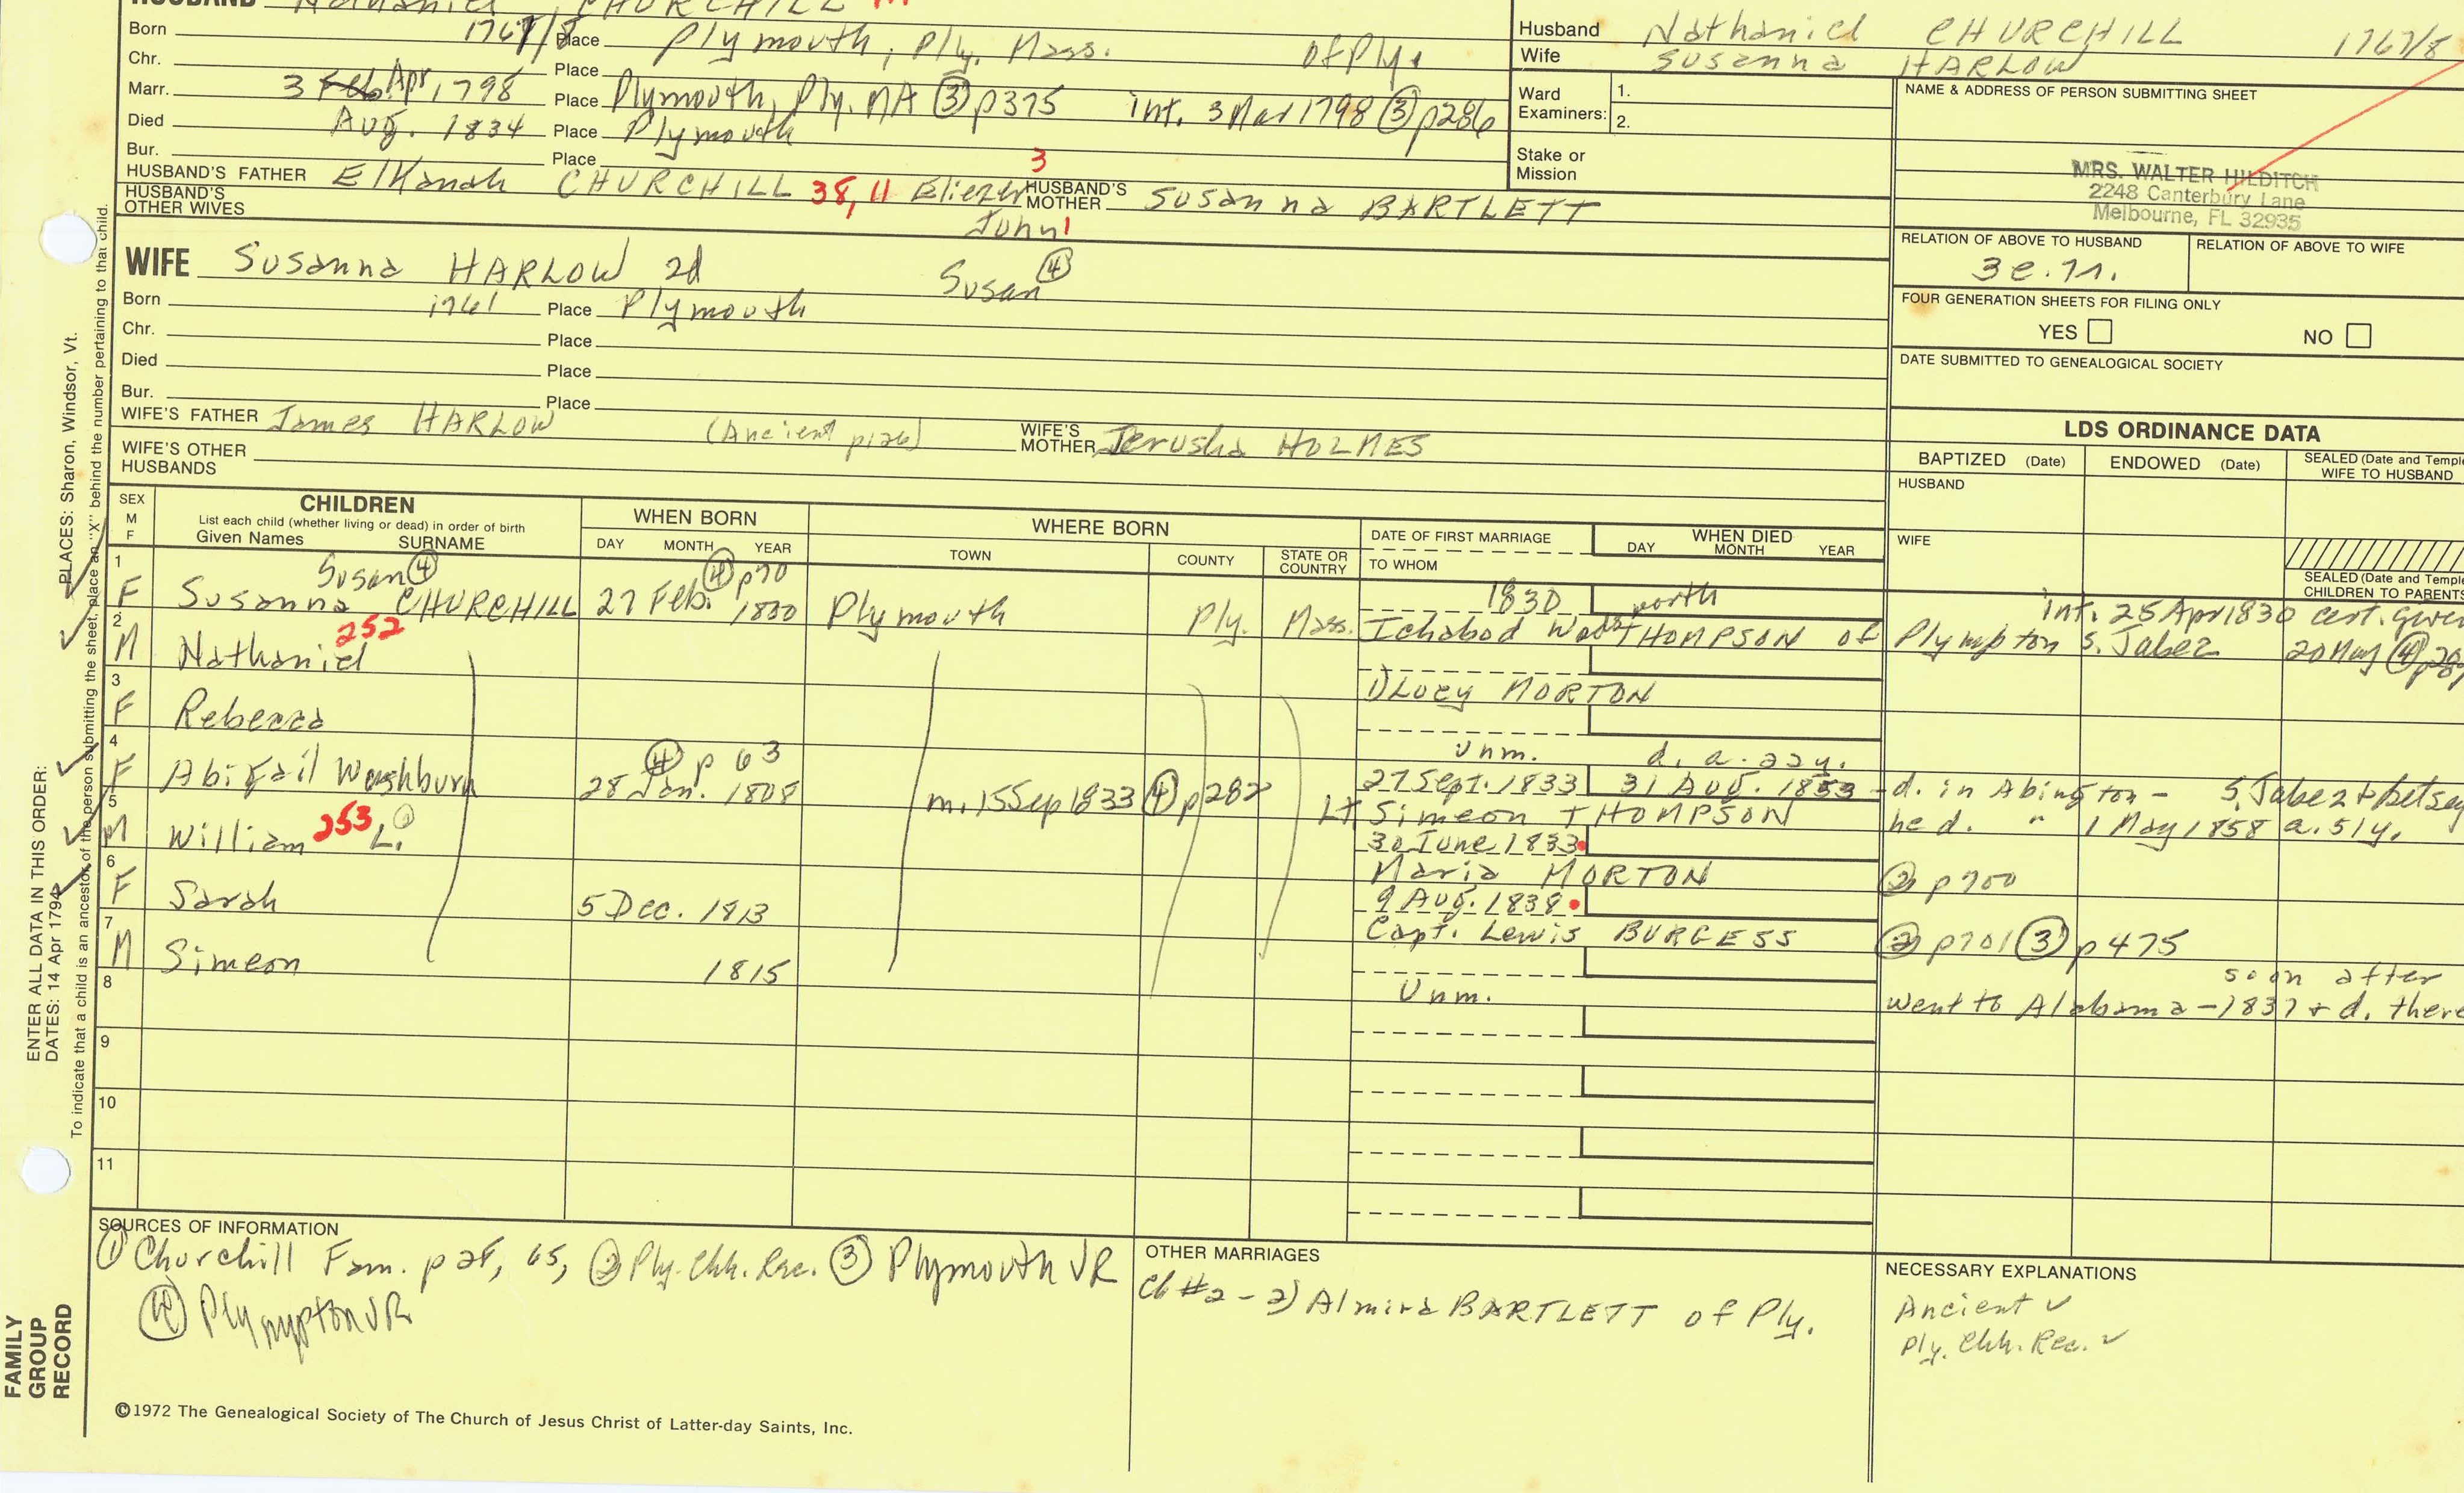 HUSBAND Nathaniel CHURCHILL
Born 1767/8 Place Plymouth, Ply. Mass. of Ply.
Chr. Place
Marr. 3 Feb. Apr, 1798 Place Plymouth, Ply. MA ③ p375 int. 3 Mar 1798 ③ p286
Died Aug. 1834 Place Plymouth
Bur. Place
HUSBAND'S FATHER Elkanah CHURCHILL 38, 11 Eliezer 3 HUSBAND'S MOTHER Susanna BARTLETT
HUSBAND'S OTHER WIVES John 1
Husband Nathaniel CHURCHILL 1767/8
Wife Susanna HARLOW
Ward Examiners: 1.
2.
Stake or Mission
NAME & ADDRESS OF PERSON SUBMITTING SHEET
MRS. WALTER HILDITCH
2248 Canterbury Lane
Melbourne, FL 32935
RELATION OF ABOVE TO HUSBAND RELATION OF ABOVE TO WIFE
FOUR GENERATION SHEETS FOR FILING ONLY
YES NO
DATE SUBMITTED TO GENEALOGICAL SOCIETY
WIFE Susanna HARLOW 2d Susan ④
Born 1761 Place Plymouth
Chr. Place
Died Place
Bur. Place
WIFE'S FATHER James HARLOW (Ancient p126) WIFE'S MOTHER Jerusha HOLMES
WIFE'S OTHER HUSBANDS
LDS ORDINANCE DATA
BAPTIZED (Date) ENDOWED (Date) SEALED (Date and Templ
WIFE TO HUSBAND
HUSBAND
WIFE
SEALED (Date and Templ
CHILDREN TO PARENTS
SEX
M
F
CHILDREN
List each child (whether living or dead) in order of birth
Given Names SURNAME
WHEN BORN
DAY MONTH YEAR
WHERE BORN
TOWN COUNTY STATE OR COUNTRY
DATE OF FIRST MARRIAGE
TO WHOM
WHEN DIED
DAY MONTH YEAR
1 F Susan ④ Susanna CHURCHILL 27 Feb. 1800 ④ p70 Plymouth Ply. Mass. 1830
Ichabod THOMPSON of Plympton s. Jabez int. 25 Apr 1830 cert. given 20 May ④
2 M Nathaniel 252
1) Lucy MORTON
3 F Rebecca
Unm. d. a. 22y.
4 F Abigail Washburn ④ p 63 28 Jan. 1808 m. 15 Sep 1833 ④ p282 27 Sept. 1833 31 Aug. 1853 - d. in Abington - s. Jabez + Betsey
Lt Simeon THOMPSON he d. " 1 May 1858 a. 51y.
5 M William 253 L. ①
30 June 1833
Maria MORTON ② p700
6 F Sarah 5 Dec. 1813
9 Aug. 1838
Capt. Lewis BURGESS ② p701 ③ p475
7 M Simeon 1815
Unm. went to Alabama - 1837 + d. there soon after
8
9
10
11
SOURCES OF INFORMATION
① Churchill Fam. p 28, 65, ② Ply. Chh. Rec. ③ Plymouth VR
④ Plympton VR
OTHER MARRIAGES
Ch #2 - 2) Almira BARTLETT of Ply.
NECESSARY EXPLANATIONS
Ancient ✓
Ply. Chh. Rec. ✓
©1972 The Genealogical Society of The Church of Jesus Christ of Latter-day Saints, Inc.
FAMILY
GROUP
RECORD
ENTER ALL DATA IN THIS ORDER:
DATES: 14 Apr 1794
PLACES: Sharon, Windsor, Vt.
To indicate that a child is an ancestor of the person submitting the sheet, place an "X" behind the number pertaining to that child.